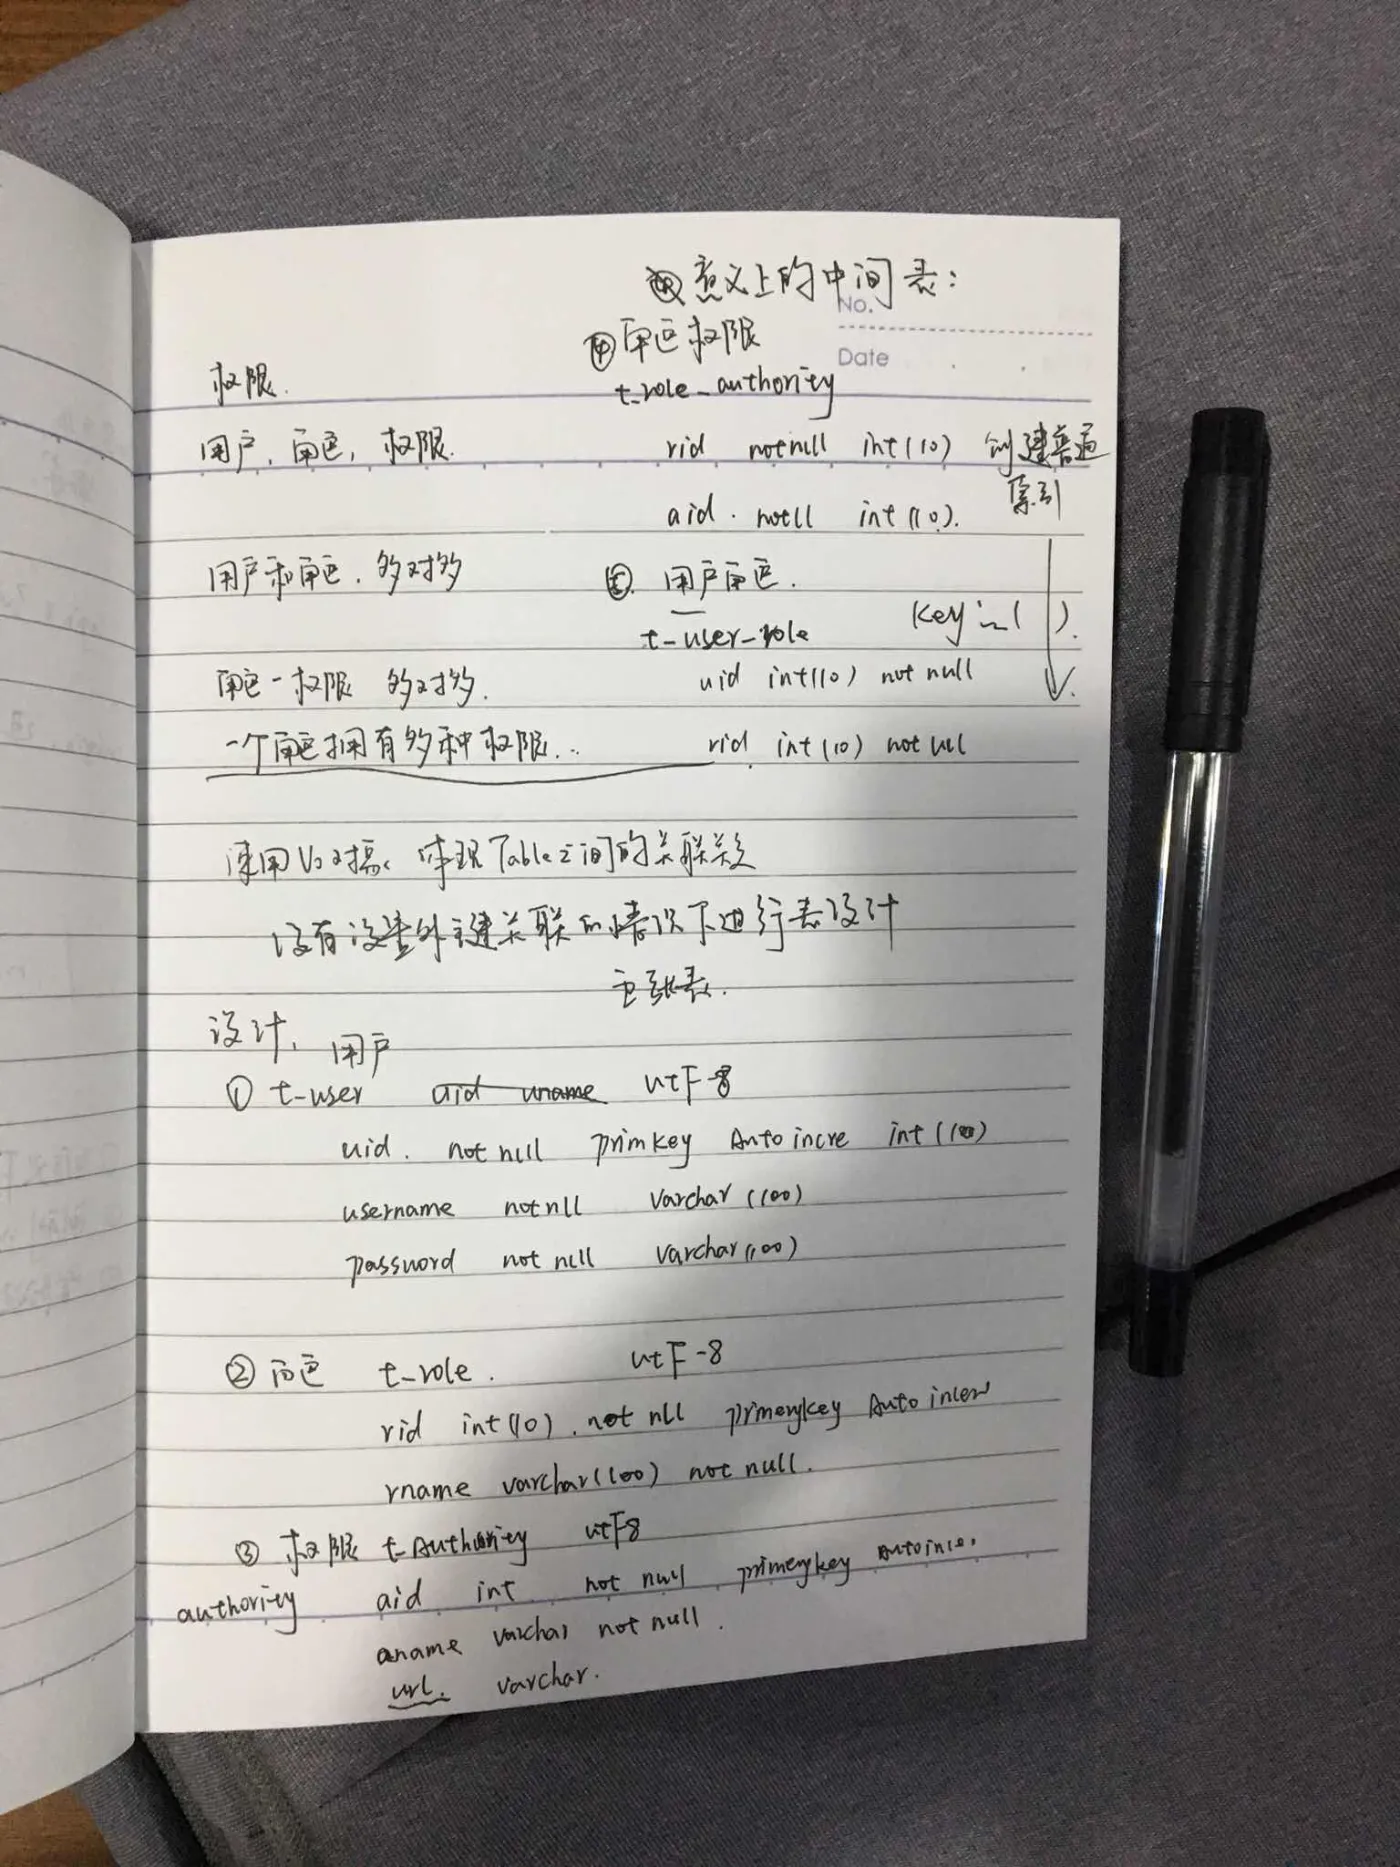 意义上的中间表:
No.
④角色权限
Date
t_role_authority
rid notnull int(10) 创建普通
索引
aid. notll int(10).
⑤. 用户角色.
t_user_role
key in( ).
uid int(10) not null
rid. int(10) not ull
权限.
用户, 角色, 权限.
用户和角色, 多对多
角色-权限 多对多.
一个角色拥有多种权限...
使用Vo对 体现Table之间的关联关系
没有设置外主键关联的情况下进行表设计
五张表.
设计, 用户
① t-user uid uname utF-8
uid. not null primkey Auto incre int(10)
username notnll varchar(100)
password not null varchar(100)
② 角色 t_role. utF-8
rid int(10). not nll primerykey Auto increv
rname varchar(100) not null.
③ 权限 t_Authority utF8
authority aid int not null primerykey Autoincre.
aname varchar not null.
url. varchar.